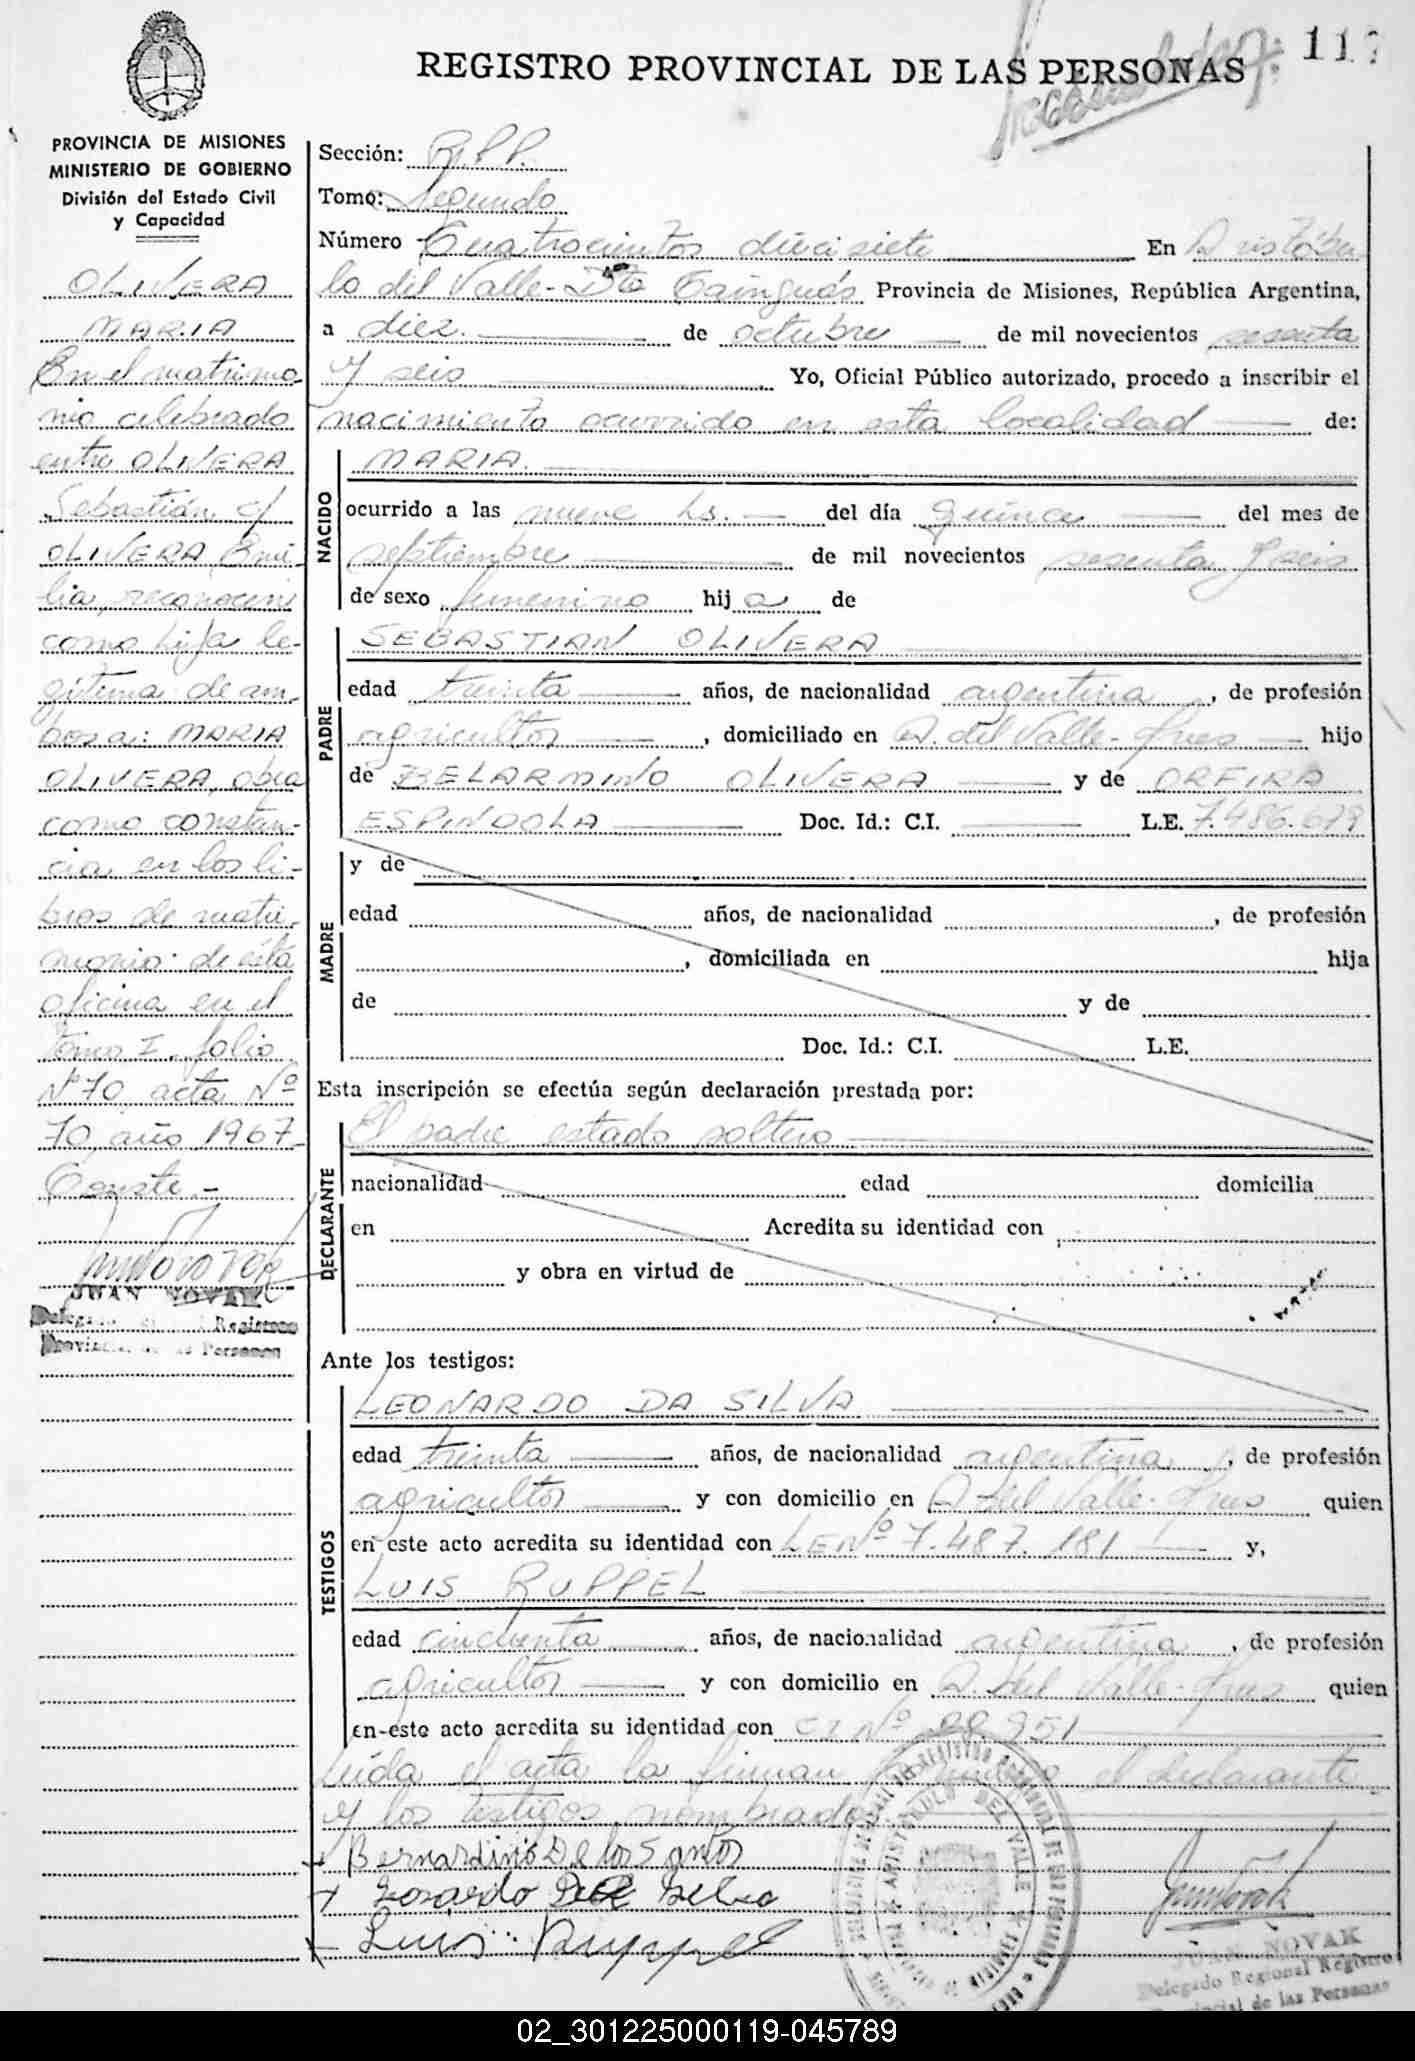 REGISTRO PROVINCIAL DE LAS PERSONAS
11
PROVINCIA DE MISIONES
MINISTERIO DE GOBIERNO
División del Estado Civil
y Capacidad
OLIVERA
MARIA
En el matrimo
nio celebrado
entre OLIVERA
Sebastián c/
OLIVERA Emi-
lia, reconocen
como hija le-
gitima de am-
bos a: MARIA
OLIVERA, obra
como constan-
cia en los li-
bros de matri-
monio de ésta
oficina en el
Tomo I folio
Nº 70 acta Nº
70 año 1967-
Conste.-
JUAN NOVAK
Delegado Registro
Provincial de las Personas
Sección: R.P.P.
Tomo: Segundo
Número Cuatrocientos diecisiete En Aristóbu
lo del Valle-Dto Cainguás Provincia de Misiones, República Argentina,
a diez de octubre de mil novecientos sesenta
y seis Yo, Oficial Público autorizado, procedo a inscribir el
nacimiento ocurrido en esta localidad de:
NACIDO
MARIA.
ocurrido a las nueve hs. del día quince del mes de
septiembre de mil novecientos sesenta y seis
de sexo femenino hija de
PADRE
SEBASTIAN OLIVERA
edad treinta años, de nacionalidad argentina, de profesión
agricultor, domiciliado en A. del Valle- hijo
de BELARMINO OLIVERA y de ORFIRA
ESPINDOLA Doc. Id.: C.I. L.E. 7.486.679
MADRE
y de
edad años, de nacionalidad , de profesión
, domiciliada en hija
de y de
Doc. Id.: C.I. L.E.
Esta inscripción se efectúa según declaración prestada por:
DECLARANTE
El padre estado soltero
nacionalidad edad domicilia
en Acredita su identidad con
y obra en virtud de
Ante los testigos:
TESTIGOS
LEONARDO DA SILVA
edad treinta años, de nacionalidad argentina, de profesión
agricultor y con domicilio en A. del Valle- quien
en este acto acredita su identidad con LE Nº 7.487.181 y,
LUIS RUPPEL
edad cincuenta años, de nacionalidad argentina, de profesión
agricultor y con domicilio en A. del Valle- quien
en este acto acredita su identidad con CI Nº
Leída el acta la firman el declarante
y los testigos nombrados
Bernardino De los Santos
Luis Ruppel
JUAN NOVAK
Delegado Regional Registro
Provincial de las Personas
02_301225000119-045789